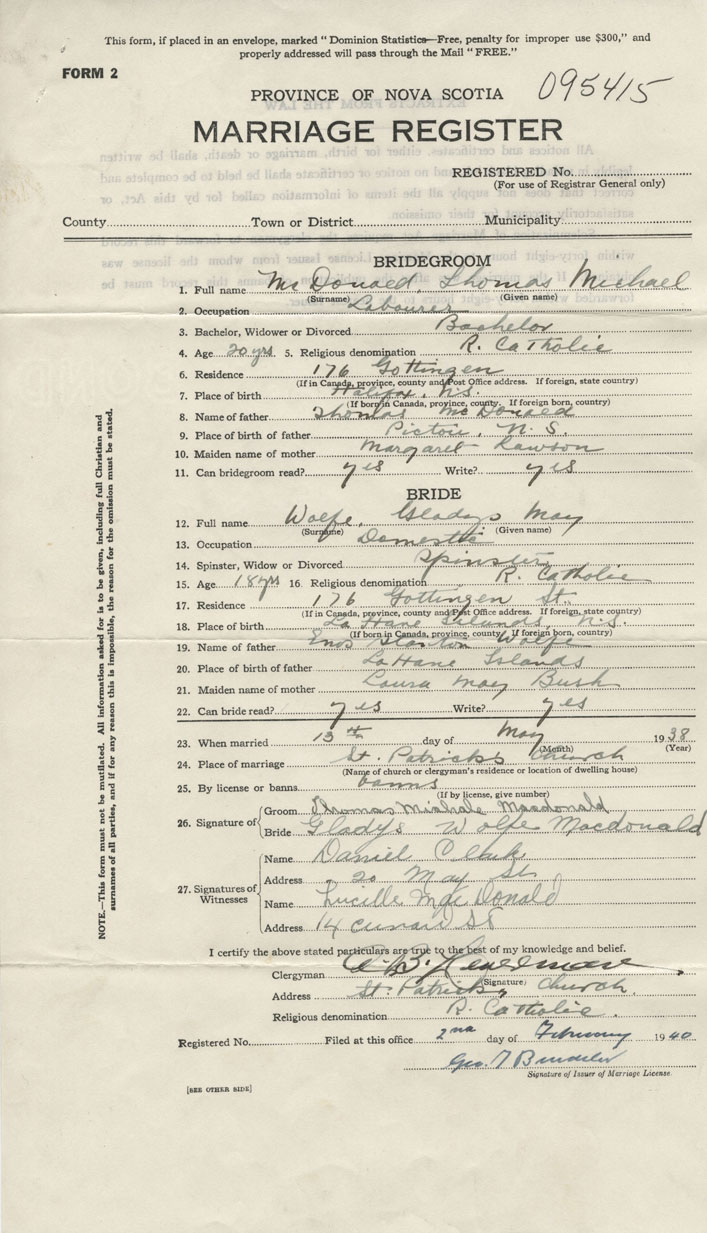 This form, if placed in an envelope, marked "Dominion Statistics—Free, penalty for improper use $300," and
properly addressed will pass through the Mail "FREE."
FORM 2
095415
PROVINCE OF NOVA SCOTIA
MARRIAGE REGISTER
REGISTERED No.
(For use of Registrar General only)
County Town or District Municipality
BRIDEGROOM
1. Full name McDonald, Thomas Michael
(Surname) (Given name)
2. Occupation Labourer
3. Bachelor, Widower or Divorced Bachelor
4. Age 20 yrs 5. Religious denomination R. Catholic
6. Residence 176 Gottingen
(If in Canada, province, county and Post Office address. If foreign, state country)
7. Place of birth Halifax, N.S.
(If born in Canada, province, county. If foreign born, country)
8. Name of father Thomas McDonald
9. Place of birth of father Pictou, N.S.
10. Maiden name of mother Margaret Lawson
11. Can bridegroom read? yes Write? yes
BRIDE
12. Full name Wolfe, Gladys May
(Surname) (Given name)
13. Occupation Domestic
14. Spinster, Widow or Divorced Spinster
15. Age 18 yrs 16. Religious denomination R. Catholic
17. Residence 176 Gottingen St.
(If in Canada, province, county and Post Office address. If foreign, state country)
18. Place of birth La Have Islands, N.S.
(If born in Canada, province, county. If foreign born, country)
19. Name of father Enos Wolfe
20. Place of birth of father La Have Islands
21. Maiden name of mother Laura May Bush
22. Can bride read? yes Write? yes
23. When married 13th day of May 1938
(Month) (Year)
24. Place of marriage St. Patrick's Church
(Name of church or clergyman's residence or location of dwelling house)
25. By license or banns banns
(If by license, give number)
26. Signature of Groom Thomas Michale Macdonald
Bride Gladys Wolfe Macdonald
27. Signatures of Witnesses
Name Daniel Clarke
Address 20 May St
Name Lucille MacDonald
Address 14 Cunard St
I certify the above stated particulars are true to the best of my knowledge and belief.
Clergyman
(Signature)
Address St. Patrick's Church.
Religious denomination R. Catholic.
Registered No. Filed at this office 2nd day of February 1940
Geo.
Signature of Issuer of Marriage License.
[SEE OTHER SIDE]
NOTE.—This form must not be mutilated. All information asked for is to be given, including full Christian and
surnames of all parties, and if for any reason this is impossible, the reason for the omission must be stated.